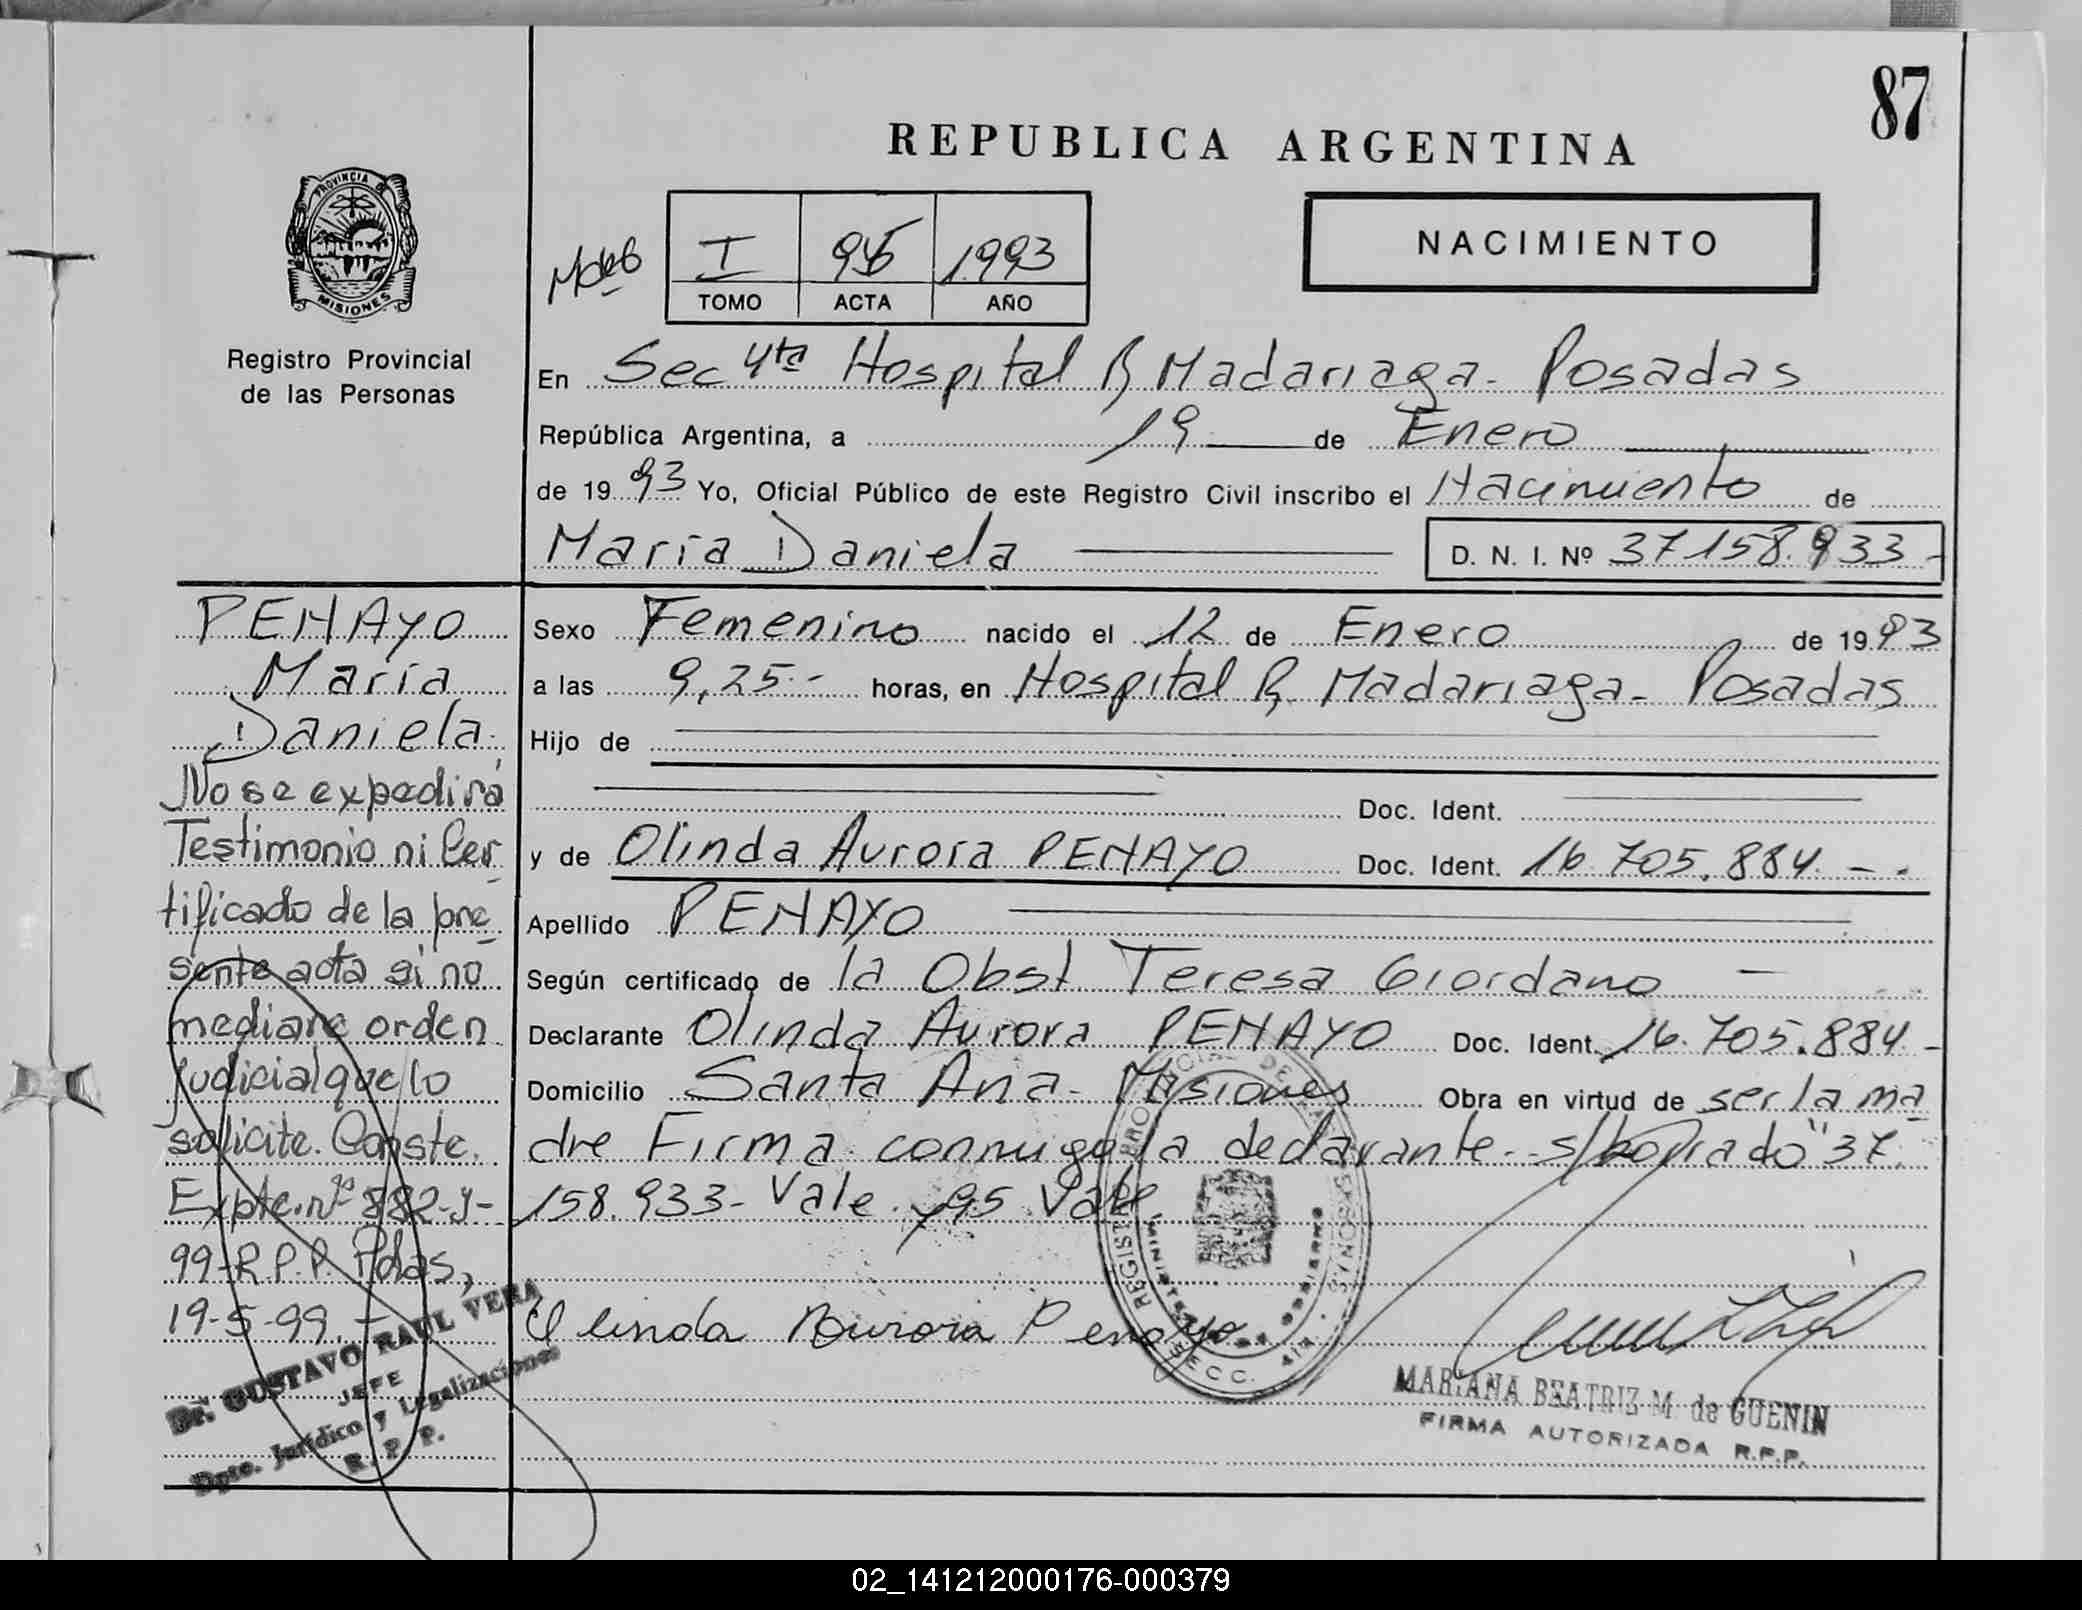 87
REPUBLICA ARGENTINA
PROVINCIA DE
MISIONES
Registro Provincial
de las Personas
I 95 1993
TOMO ACTA AÑO
NACIMIENTO
En Sec 4ta Hospital R. Madariaga - Posadas
República Argentina, a 19 de Enero
de 1993 Yo, Oficial Público de este Registro Civil inscribo el Nacimiento de
María Daniela D. N. I. Nº 37158.933-
PENAYO
María
Daniela.
No se expedirá
Testimonio ni Cer
tificado de la pre
sente acta si no
mediare orden
judicial que lo
solicite. Conste.
Expte. nº 882-y-
99-R.P.P. Pdas,
19-5-99.-
Dr. GUSTAVO RAUL VERA
JEFE
Dpto. Jurídico y Legalizaciones
R. P. P.
Sexo Femenino nacido el 12 de Enero de 1993
a las 9,25.- horas, en Hospital R. Madariaga - Posadas
Hijo de
Doc. Ident.
y de Olinda Aurora PENAYO Doc. Ident. 16.705.884.--.
Apellido PENAYO
Según certificado de la Obst Teresa Giordano -
Declarante Olinda Aurora PENAYO Doc. Ident. 16.705.884-
Domicilio Santa Ana - Misiones Obra en virtud de ser la ma
dre Firma conmigo la declarante - s/borrado "37.
158.933 - Vale y 95 Vale
Olinda Aurora Penayo
REGISTRO PROVINCIAL DE LAS PERSONAS
MINISTERIO DE GOBIERNO
SECC. 4ta
MARIANA BEATRIZ M. de GUENIN
FIRMA AUTORIZADA R.P.P.
02_141212000176-000379